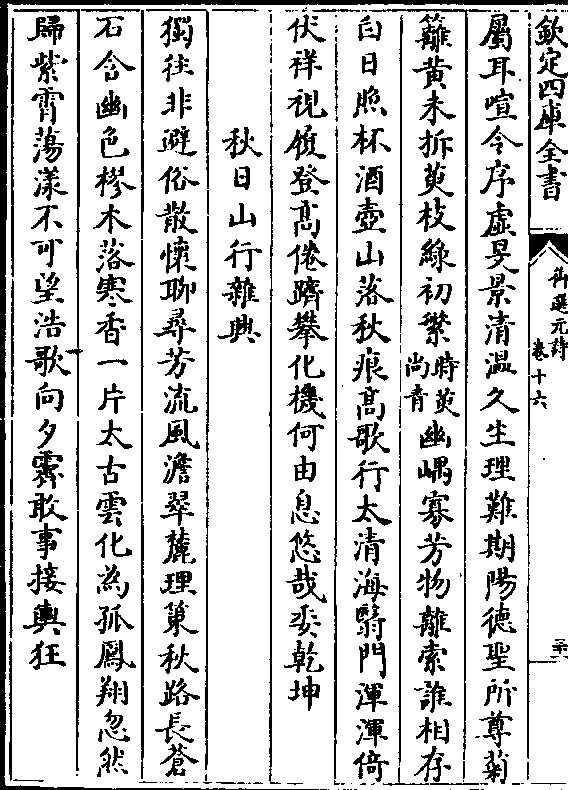 欽定四庫全書
御選元詩
卷十六
屬耳喧令序虛旻景清溫久生理難期陽德聖所尊菊
籬黃未拆萸枝綠初繁時萸尚青幽嵎寡芳物離索誰相存
白日照杯酒壺山落秋痕髙歌行太清海翳門渾渾倚
伏祥視履登髙倦躋攀化機何由息悠哉委乾坤
秋日山行雜興
獨往非避俗散懷聊尋芳流風澹翠麓理䇿秋路長蒼
石含幽色樛木落寒香一片太古雲化為孤鳳翔忽然
歸紫霄蕩漾不可望浩歌向夕霽敢事接輿狂